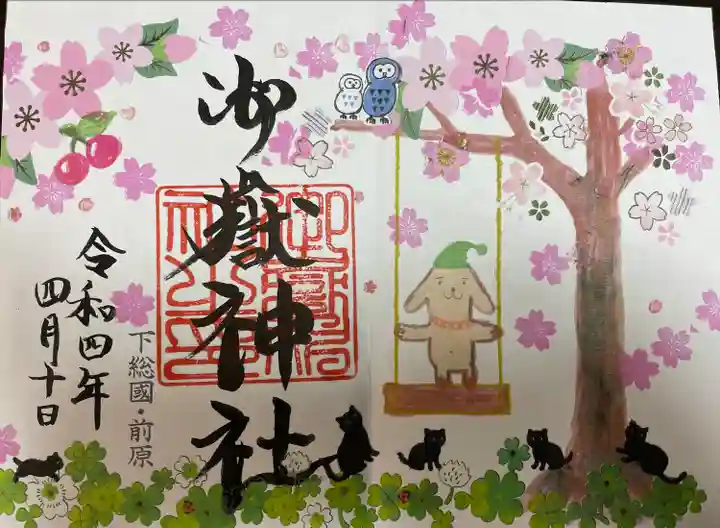 御嶽神社
下総國・前原
令和四年
四月十日